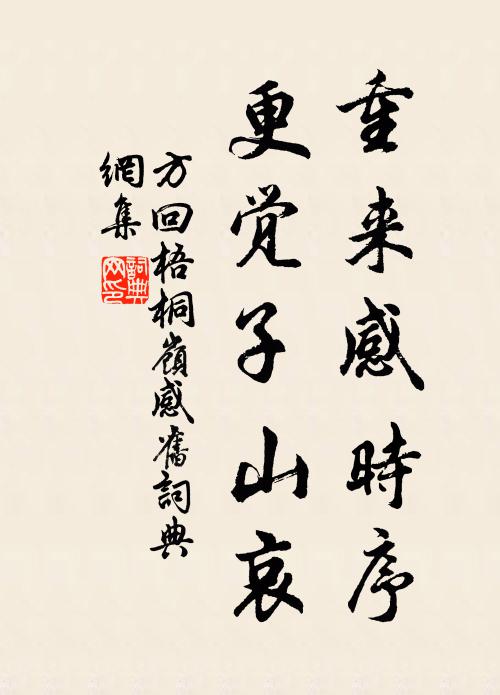 重来感時序
更覚子山哀
方回梧桐嶺感舊詞典
網集
詞典
网印